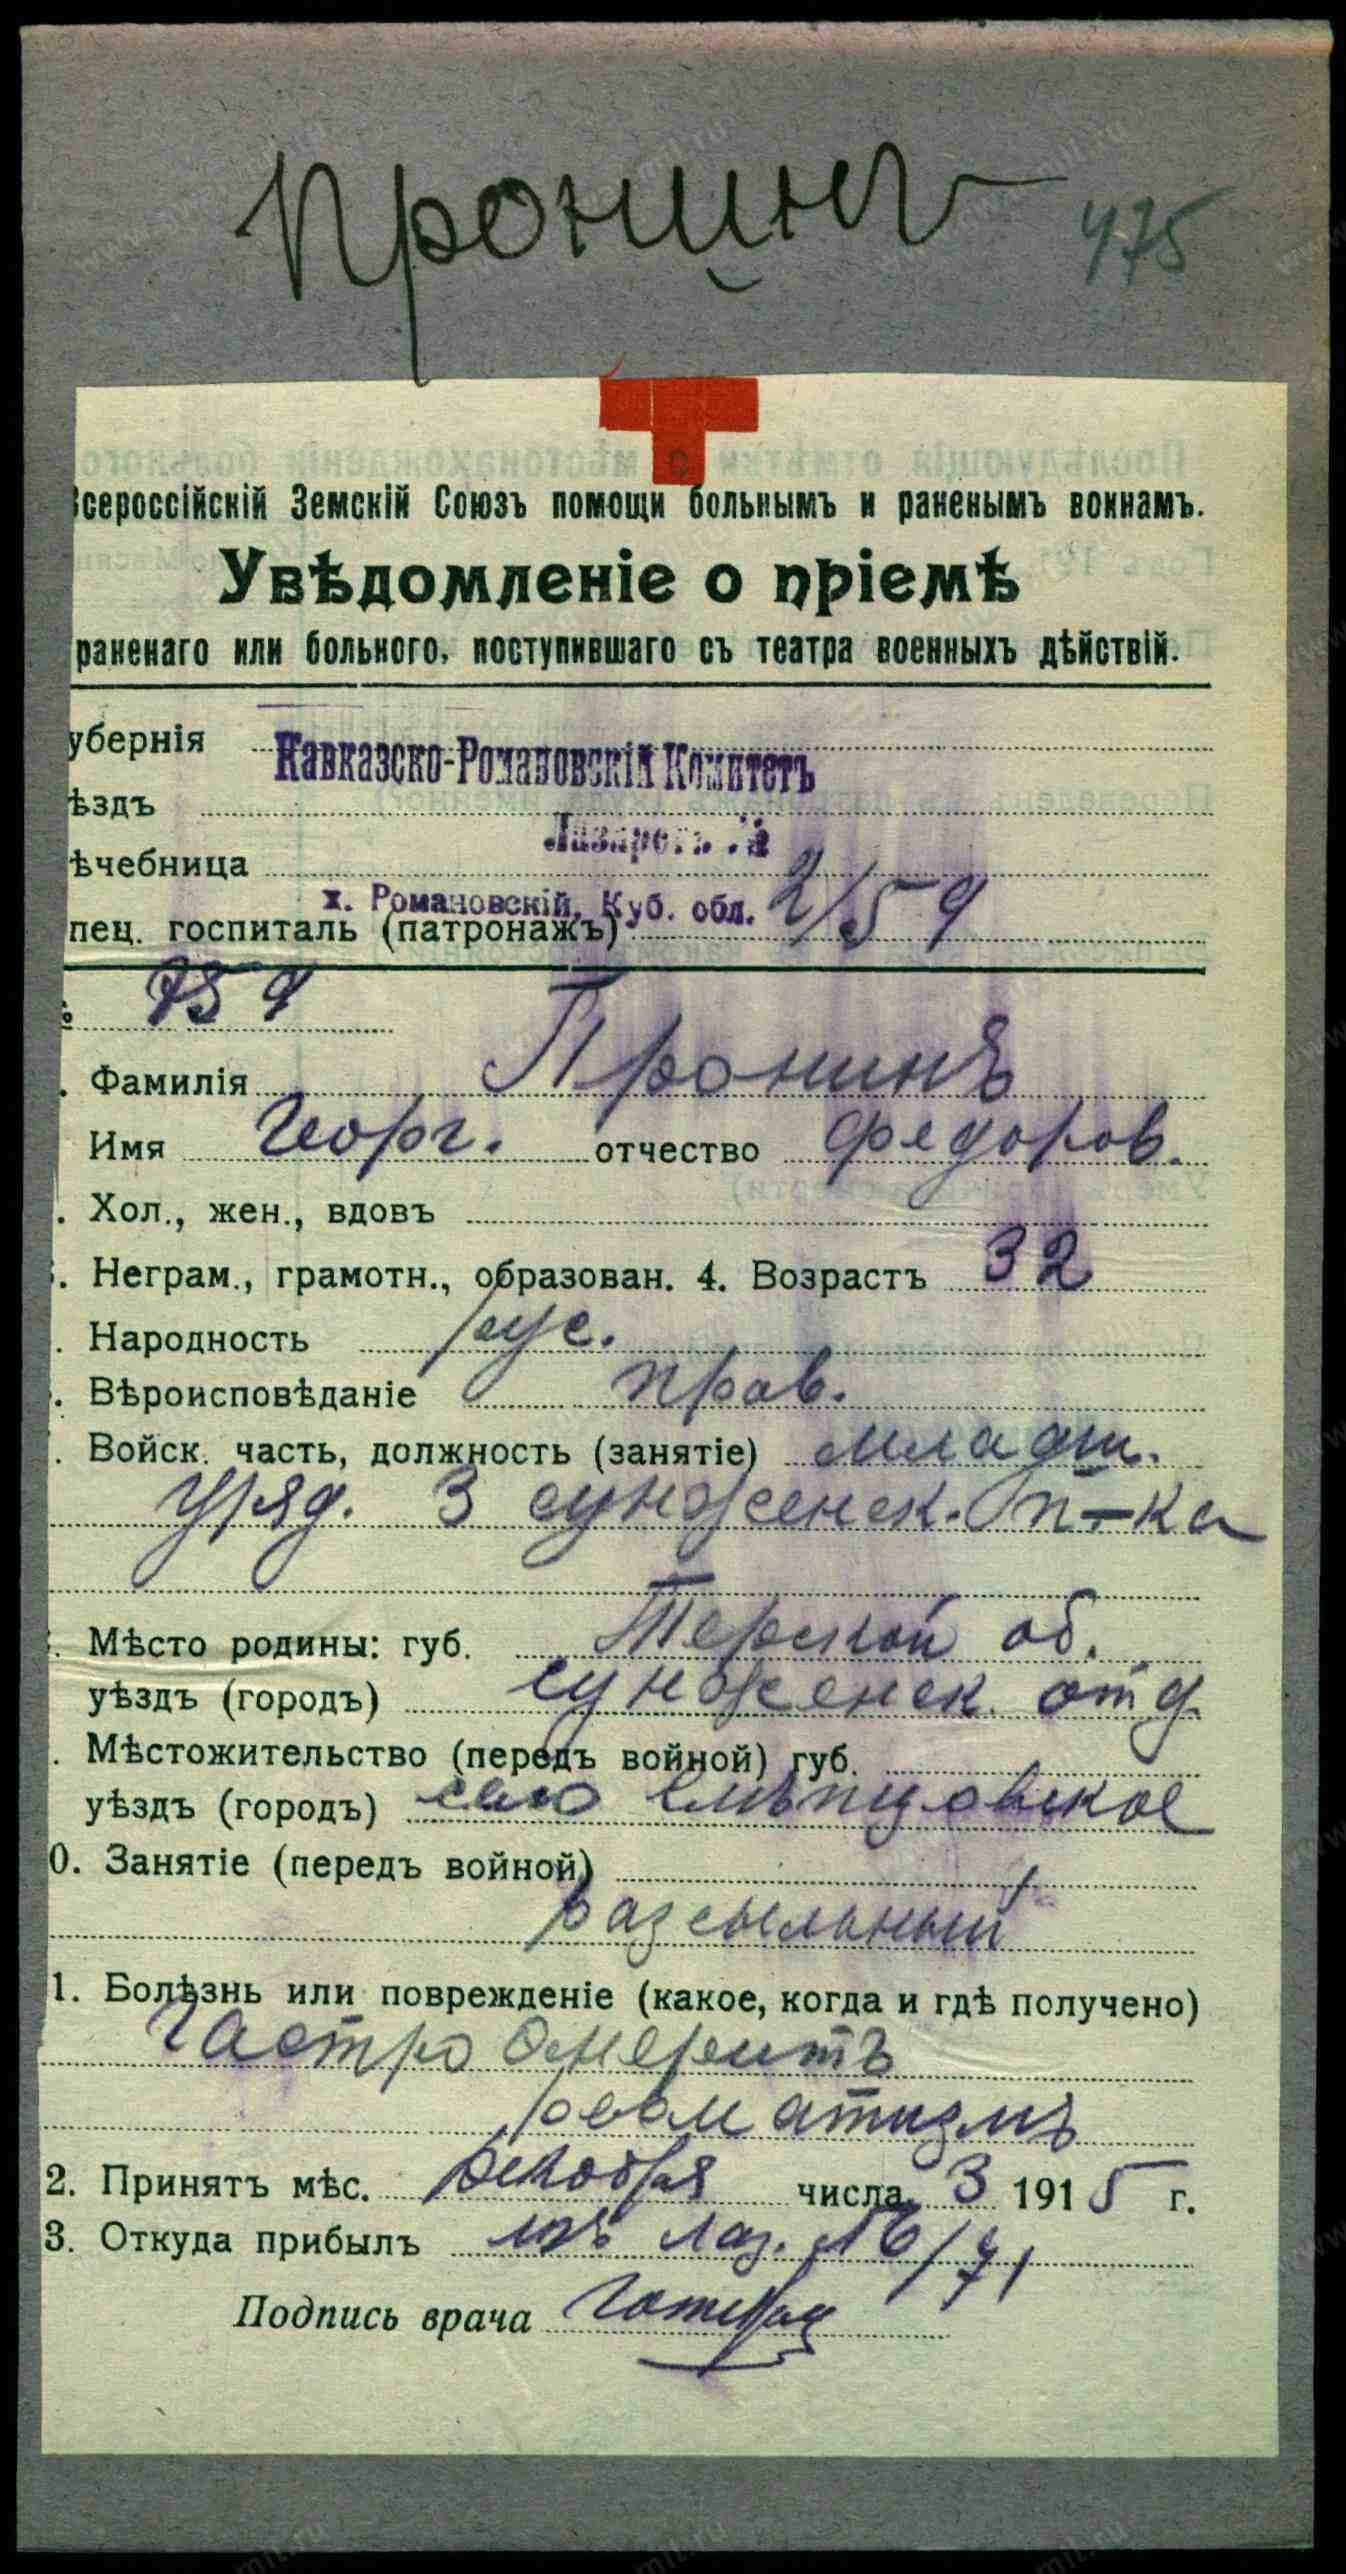 Пронинъ 475
Всероссійскій Земскій Союзъ помощи больнымъ и раненымъ воинамъ.
Увѣдомленіе о пріемѣ
раненаго или больного, поступившаго съ театра военныхъ дѣйствій.
убернія Кавказско-Романовскій Комитетъ
ѣздъ
Лазаретъ №
ѣчебница
х. Романовскій, Куб. обл. 2/59
пец. госпиталь (патронажъ)
759
Фамилія Пронинъ
Имя Георг. отчество Федоров.
Хол., жен., вдовъ
Неграм., грамотн., образован. 4. Возрастъ 32
Народность рус.
Вѣроисповѣданіе прав.
Войск. часть, должность (занятіе) младш.
Уряд. 3 сунженск. п-ка
Мѣсто родины: губ. Терской об.
уѣздъ (городъ) сунженск. отд.
Мѣстожительство (передъ войной) губ.
уѣздъ (городъ) село
0. Занятіе (передъ войной)
разсыльный
1. Болѣзнь или поврежденіе (какое, когда и гдѣ получено)
Гастро
ревматизмъ
2. Принятъ мѣс. числа 3 1915 г.
3. Откуда прибылъ изъ лаз. №
Подпись врача